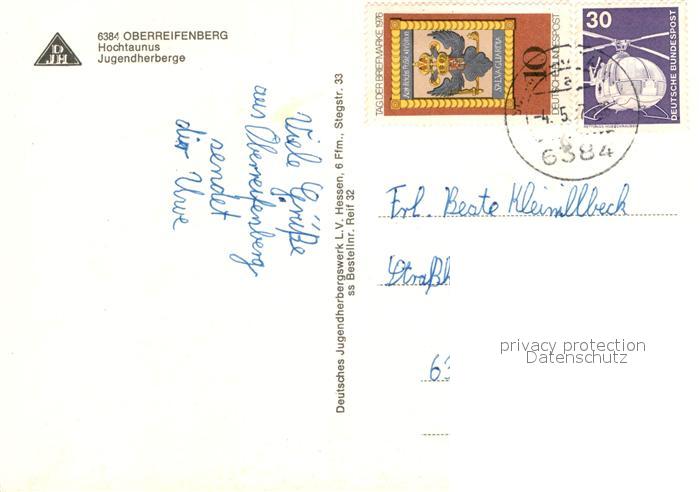 DJH
6384 OBERREIFENBERG
Hochtaunus
Jugendherberge
Viele Grüße
aus Oberreifenberg
sendet
dir Uwe
Deutsches Jugendherbergswerk L.V. Hessen, 6 Ffm., Stegstr. 33
ss Bestellnr. Reif 32
TAG DER BRIEFMARKE 1976
SALVA GUARDIA
10
DEUTSCHE BUNDESPOST
30
DEUTSCHE BUNDESPOST
-4.5.
6384
Frl. Beate Kleinillbeck
Straßh
63
privacy protection
Datenschutz